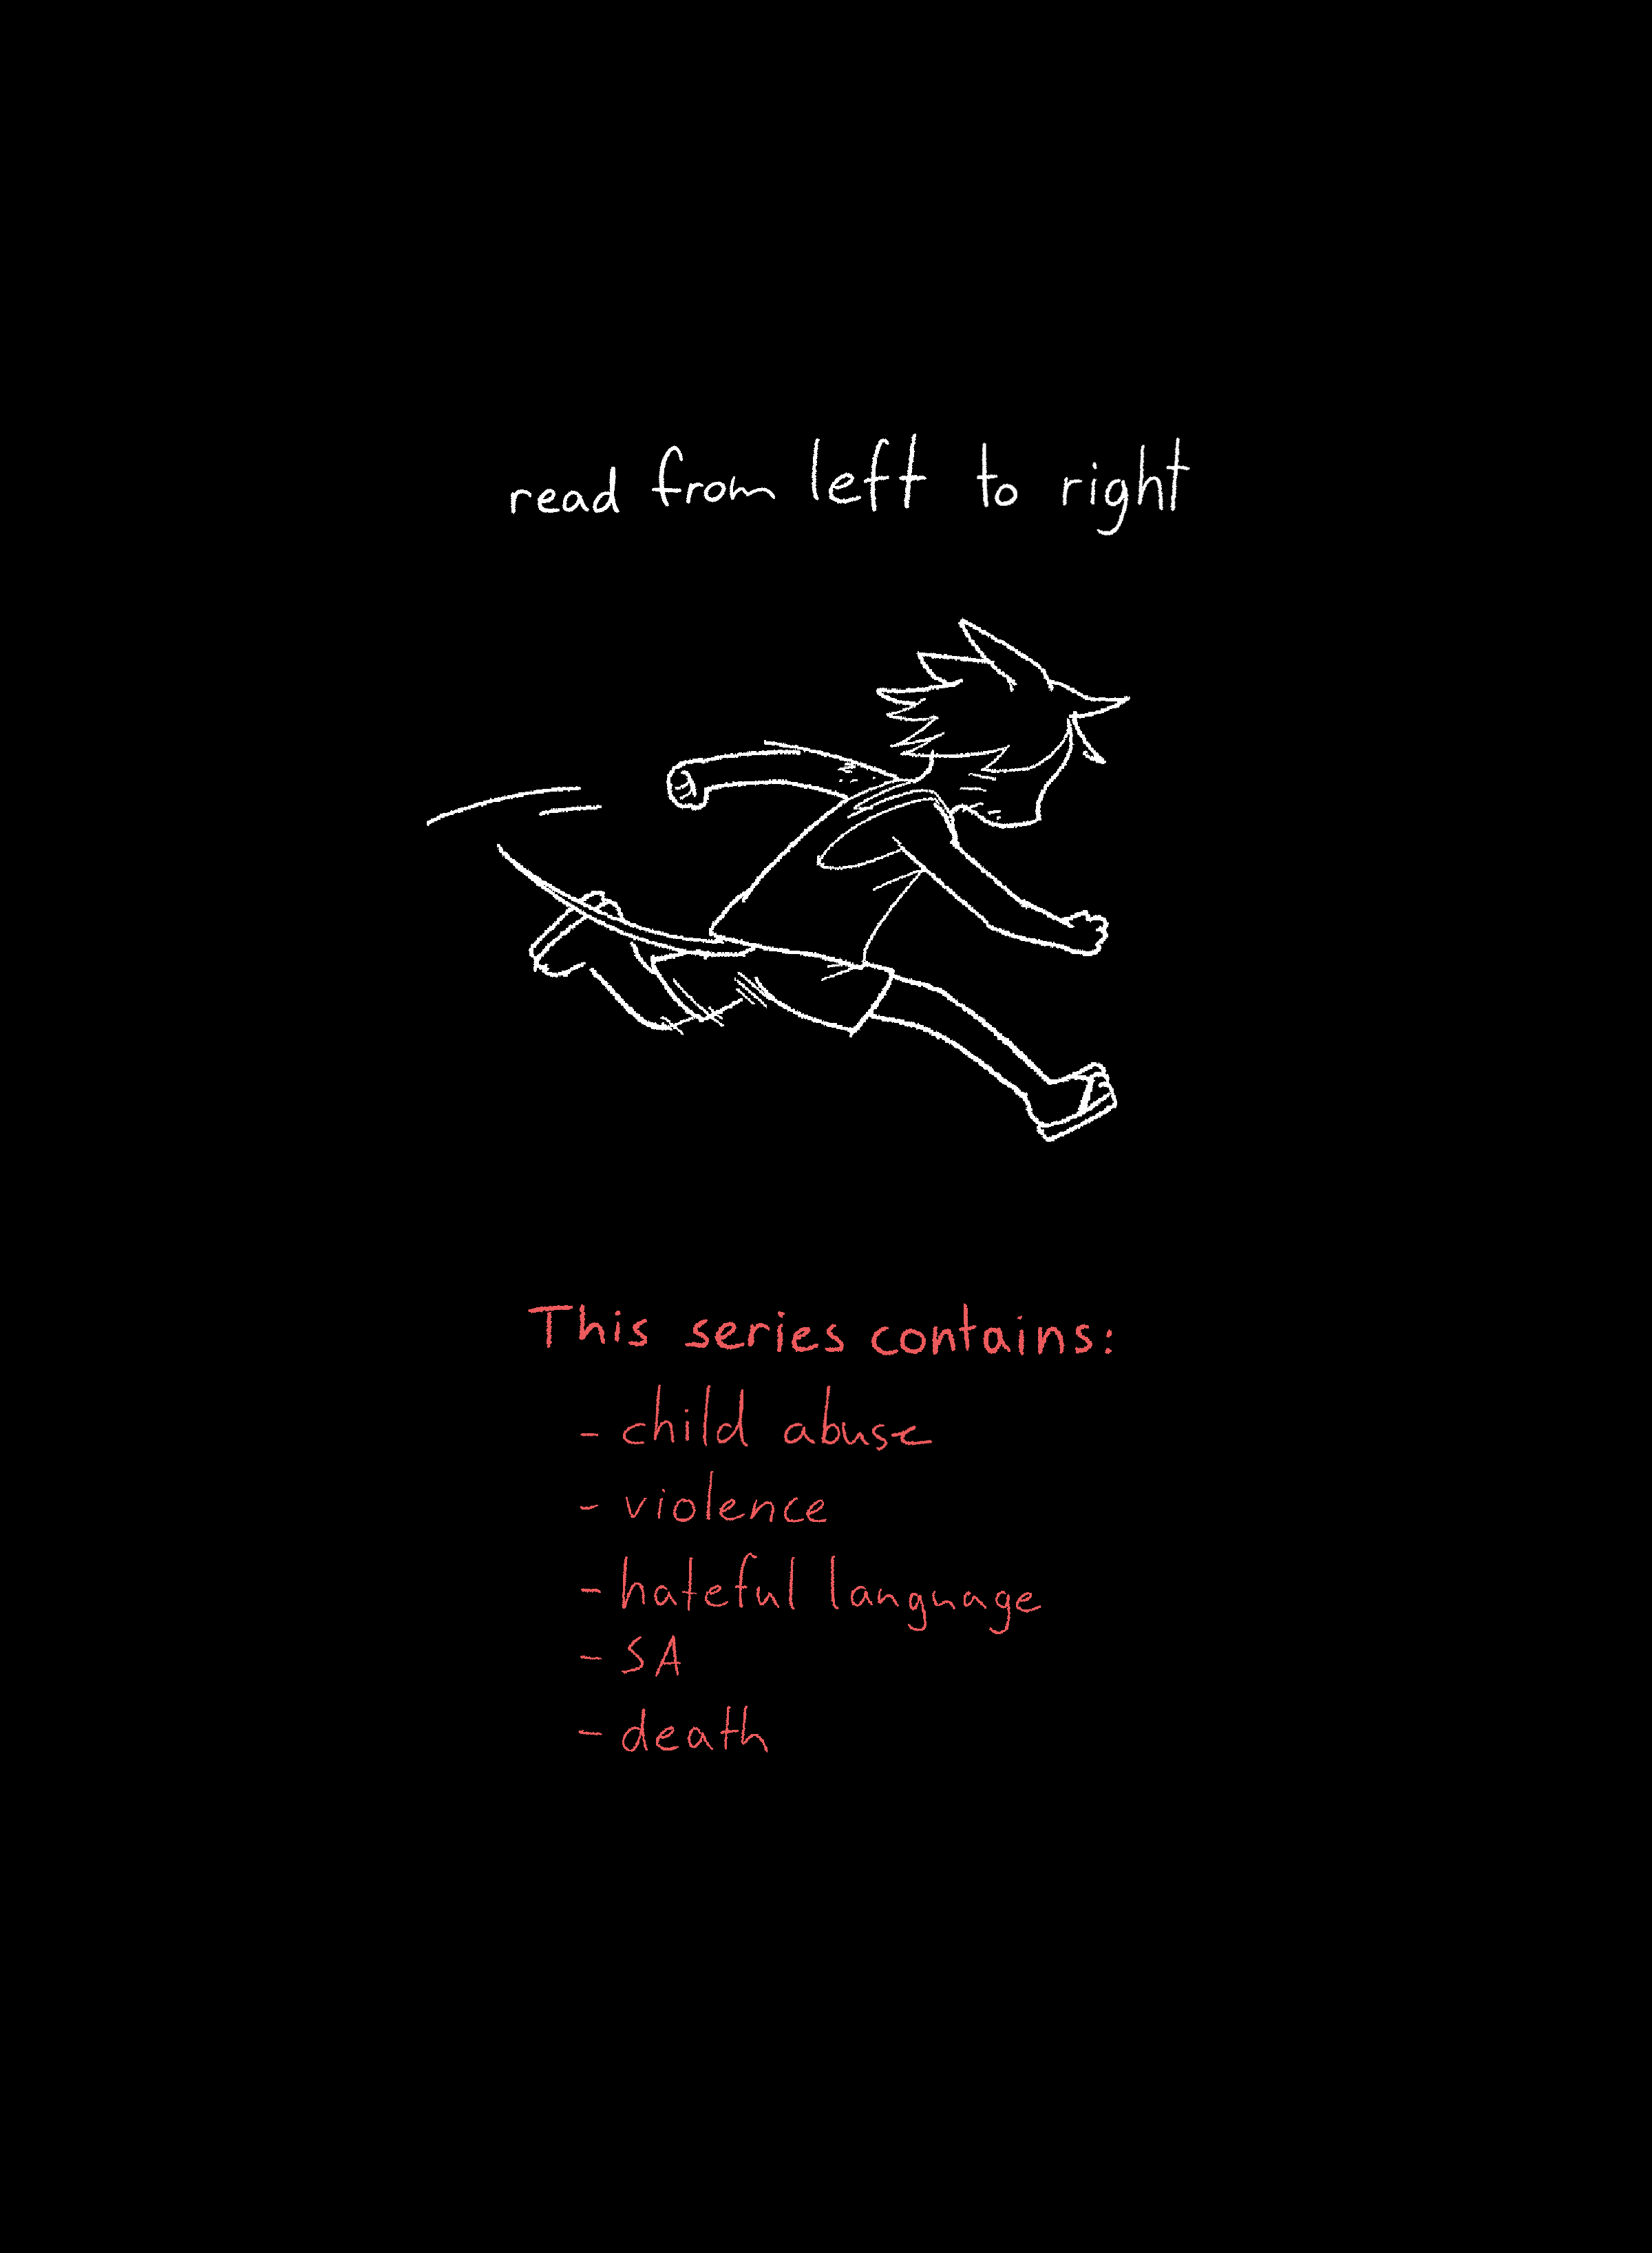 read from left to right
This series contains:
- child abuse
- violence
- hateful language
- SA
- death